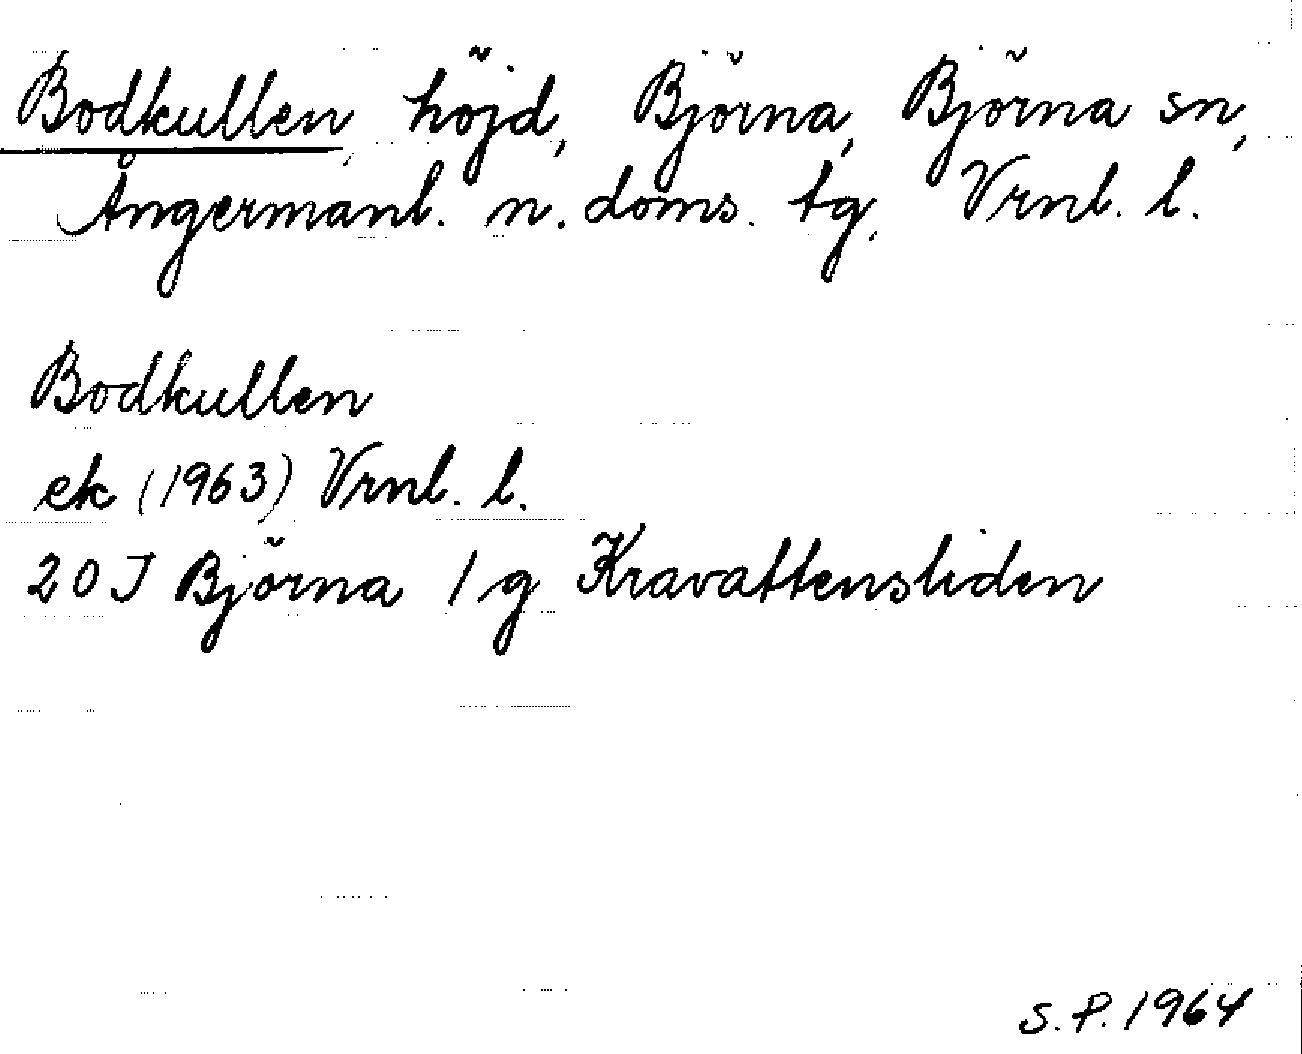 Bodkullen, höjd, Björna, Björna sn,
Ångermanl. n. doms. tg, Vrnl. l.
Bodkullen
ek (1963) Vrnl. l.
20 J Björna 1 g Kravattensliden
S.P. 1964